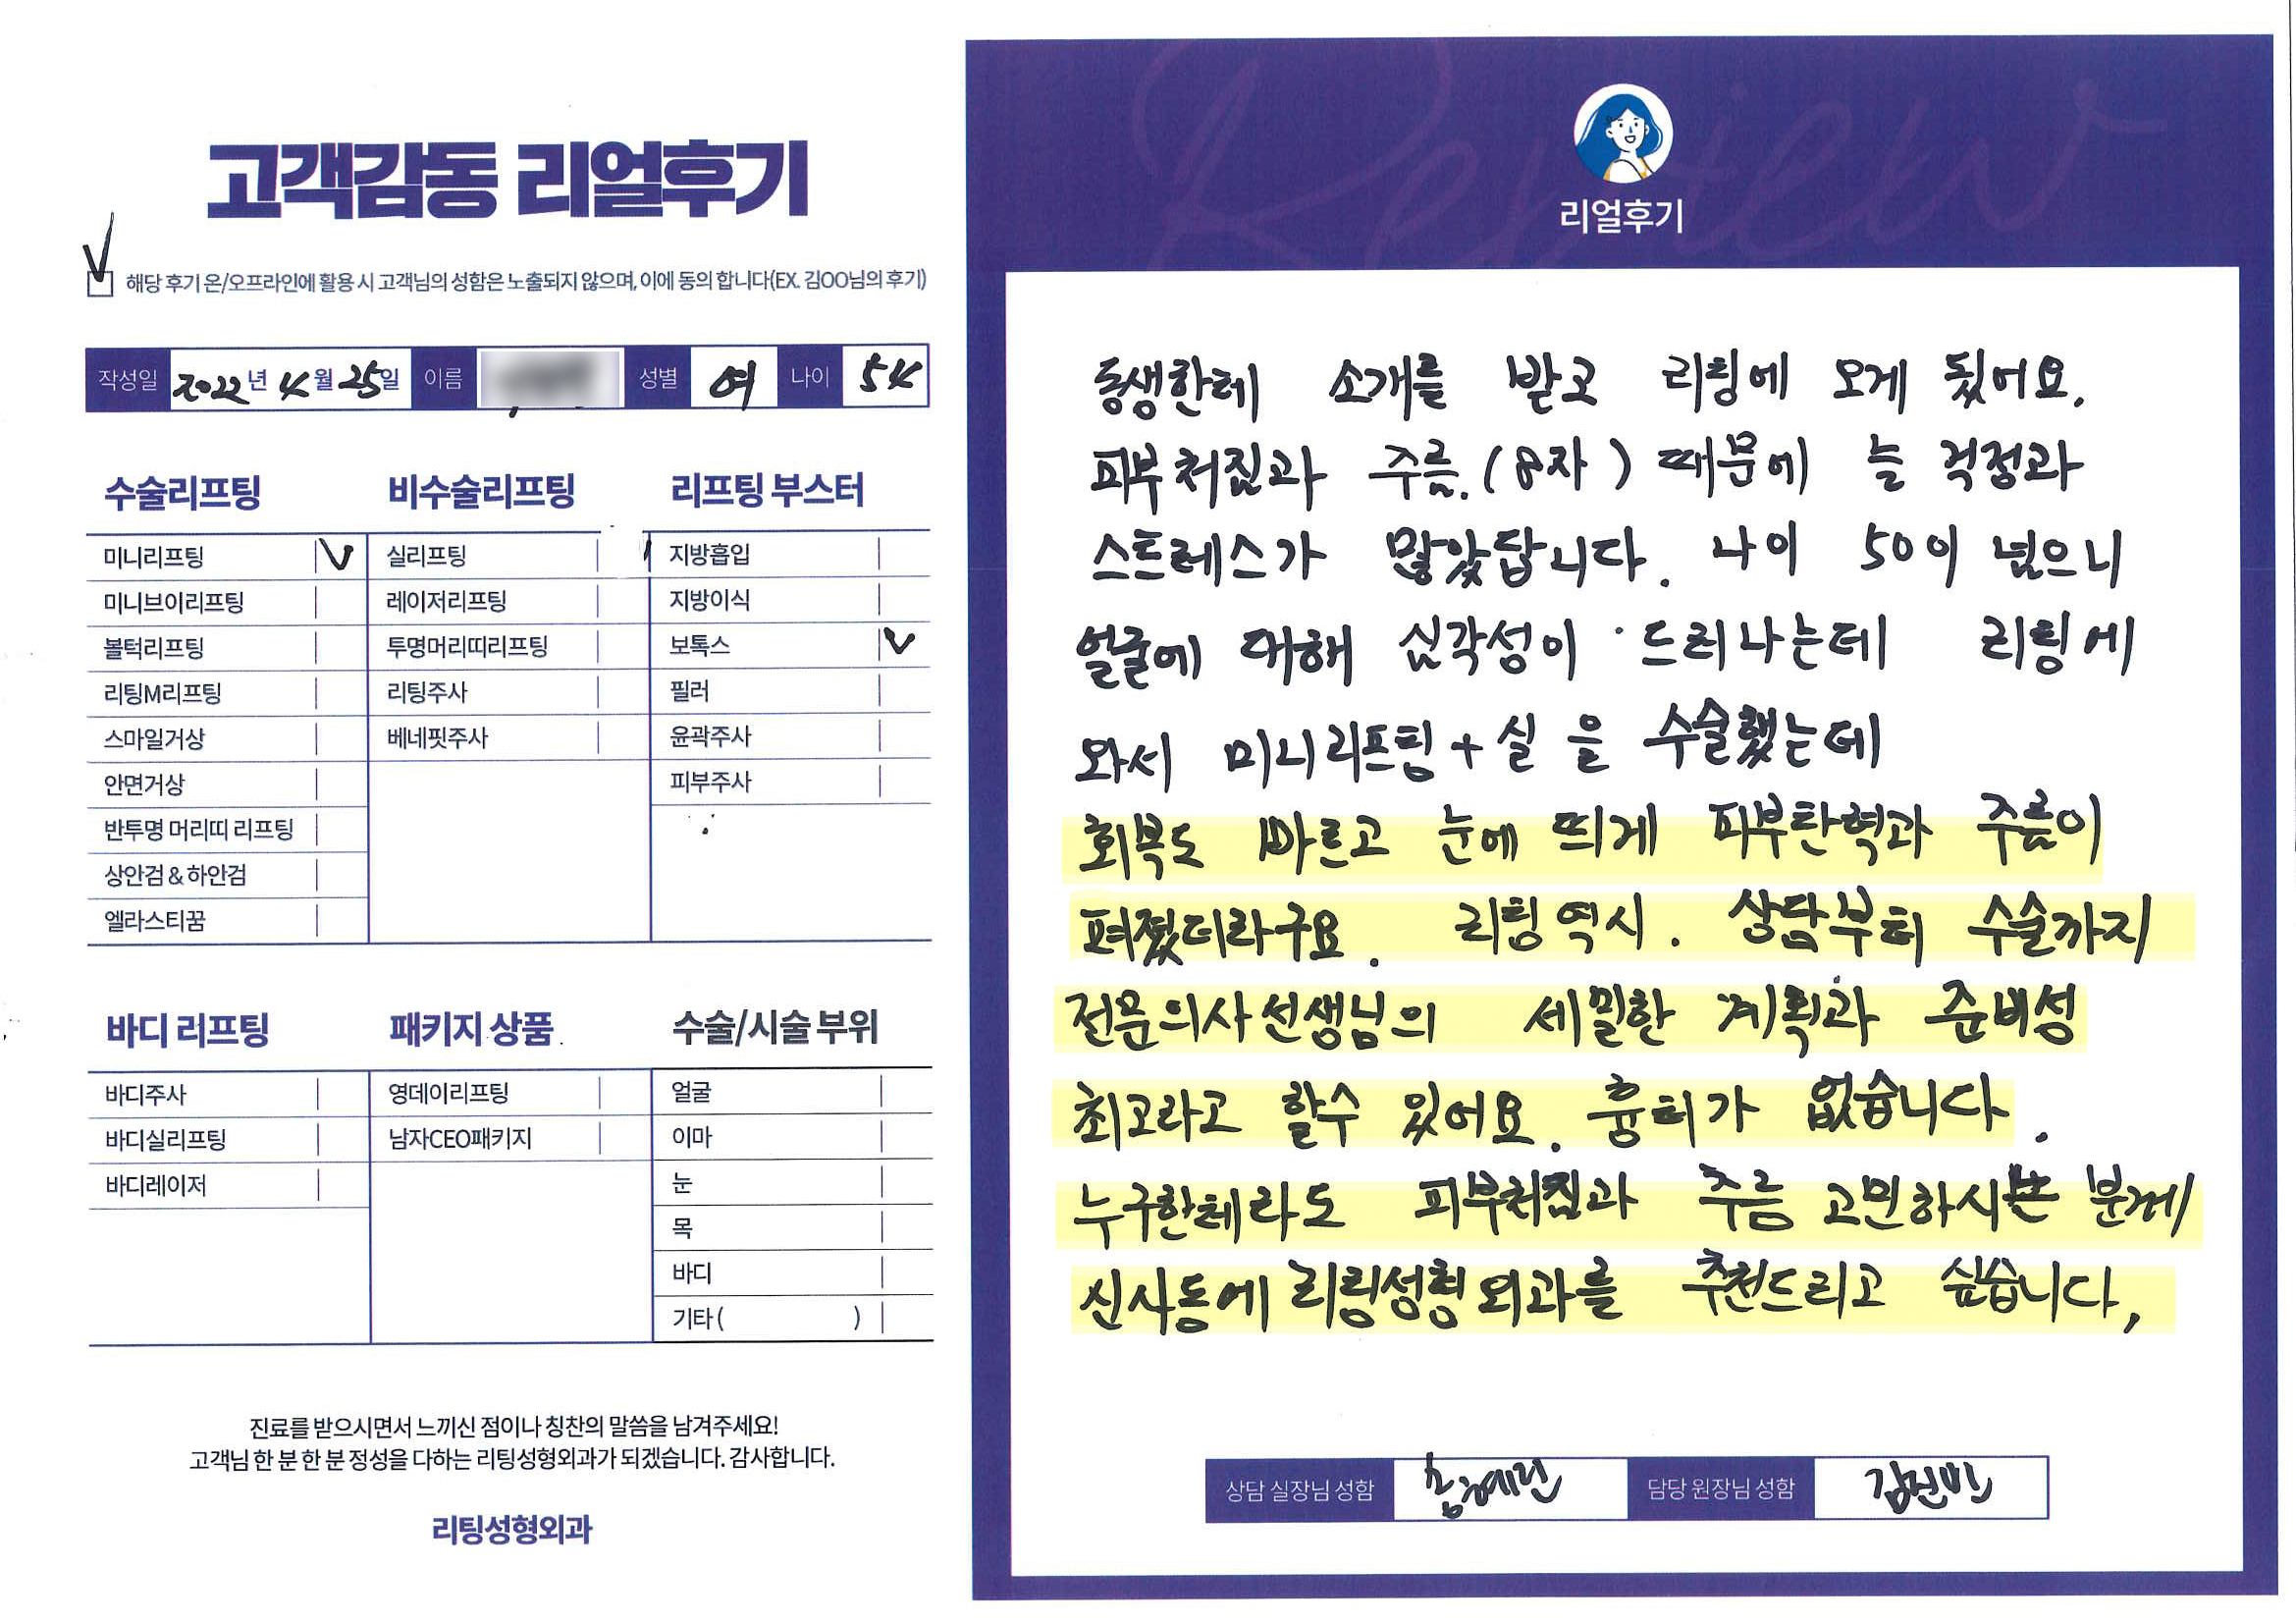 고객감동 리얼후기
해당 후기 온/오프라인에 활용 시 고객님의 성함은 노출되지 않으며, 이에 동의 합니다(EX. 김OO님의 후기)
작성일 2022년 4월 25일 이름 성별 여 나이 54
수술리프팅
미니리프팅 V
미니브이리프팅
볼턱리프팅
리팅M리프팅
스마일거상
안면거상
반투명 머리띠 리프팅
상안검 & 하안검
엘라스티꿈
비수술리프팅
실리프팅
레이저리프팅
투명머리띠리프팅
리팅주사
베네핏주사
리프팅 부스터
지방흡입
지방이식
보톡스 V
필러
윤곽주사
피부주사
바디 러프팅
바디주사
바디실리프팅
바디레이저
패키지 상품
영데이리프팅
남자CEO패키지
수술/시술 부위
얼굴
이마
눈
목
바디
기타 ( )
진료를 받으시면서 느끼신 점이나 칭찬의 말씀을 남겨주세요!
고객님 한 분 한 분 정성을 다하는 리팅성형외과가 되겠습니다. 감사합니다.
리팅성형외과
Review
리얼후기
동생한테 소개를 받고 리팅에 오게 됬어요.
피부처짐과 주름.(8자) 때문에 늘 걱정과
스트레스가 많았답니다. 나이 50이 넘으니
얼굴에 대해 심각성이 드러나는데 리팅에
와서 미니리프팅+실 을 수술했는데
회복도 빠르고 눈에 띄게 피부탄력과 주름이
펴졌더라구요. 리팅역시. 상담부터 수술까지
전문의사선생님의 세밀한 계획과 준비성
최고라고 할수 있어요. 흉터가 없습니다.
누구한테라도 피부처짐과 주름 고민하시는 분께
신사동에 리팅성형외과를 추천드리고 싶습니다,
상담 실장님 성함
담당 원장님 성함